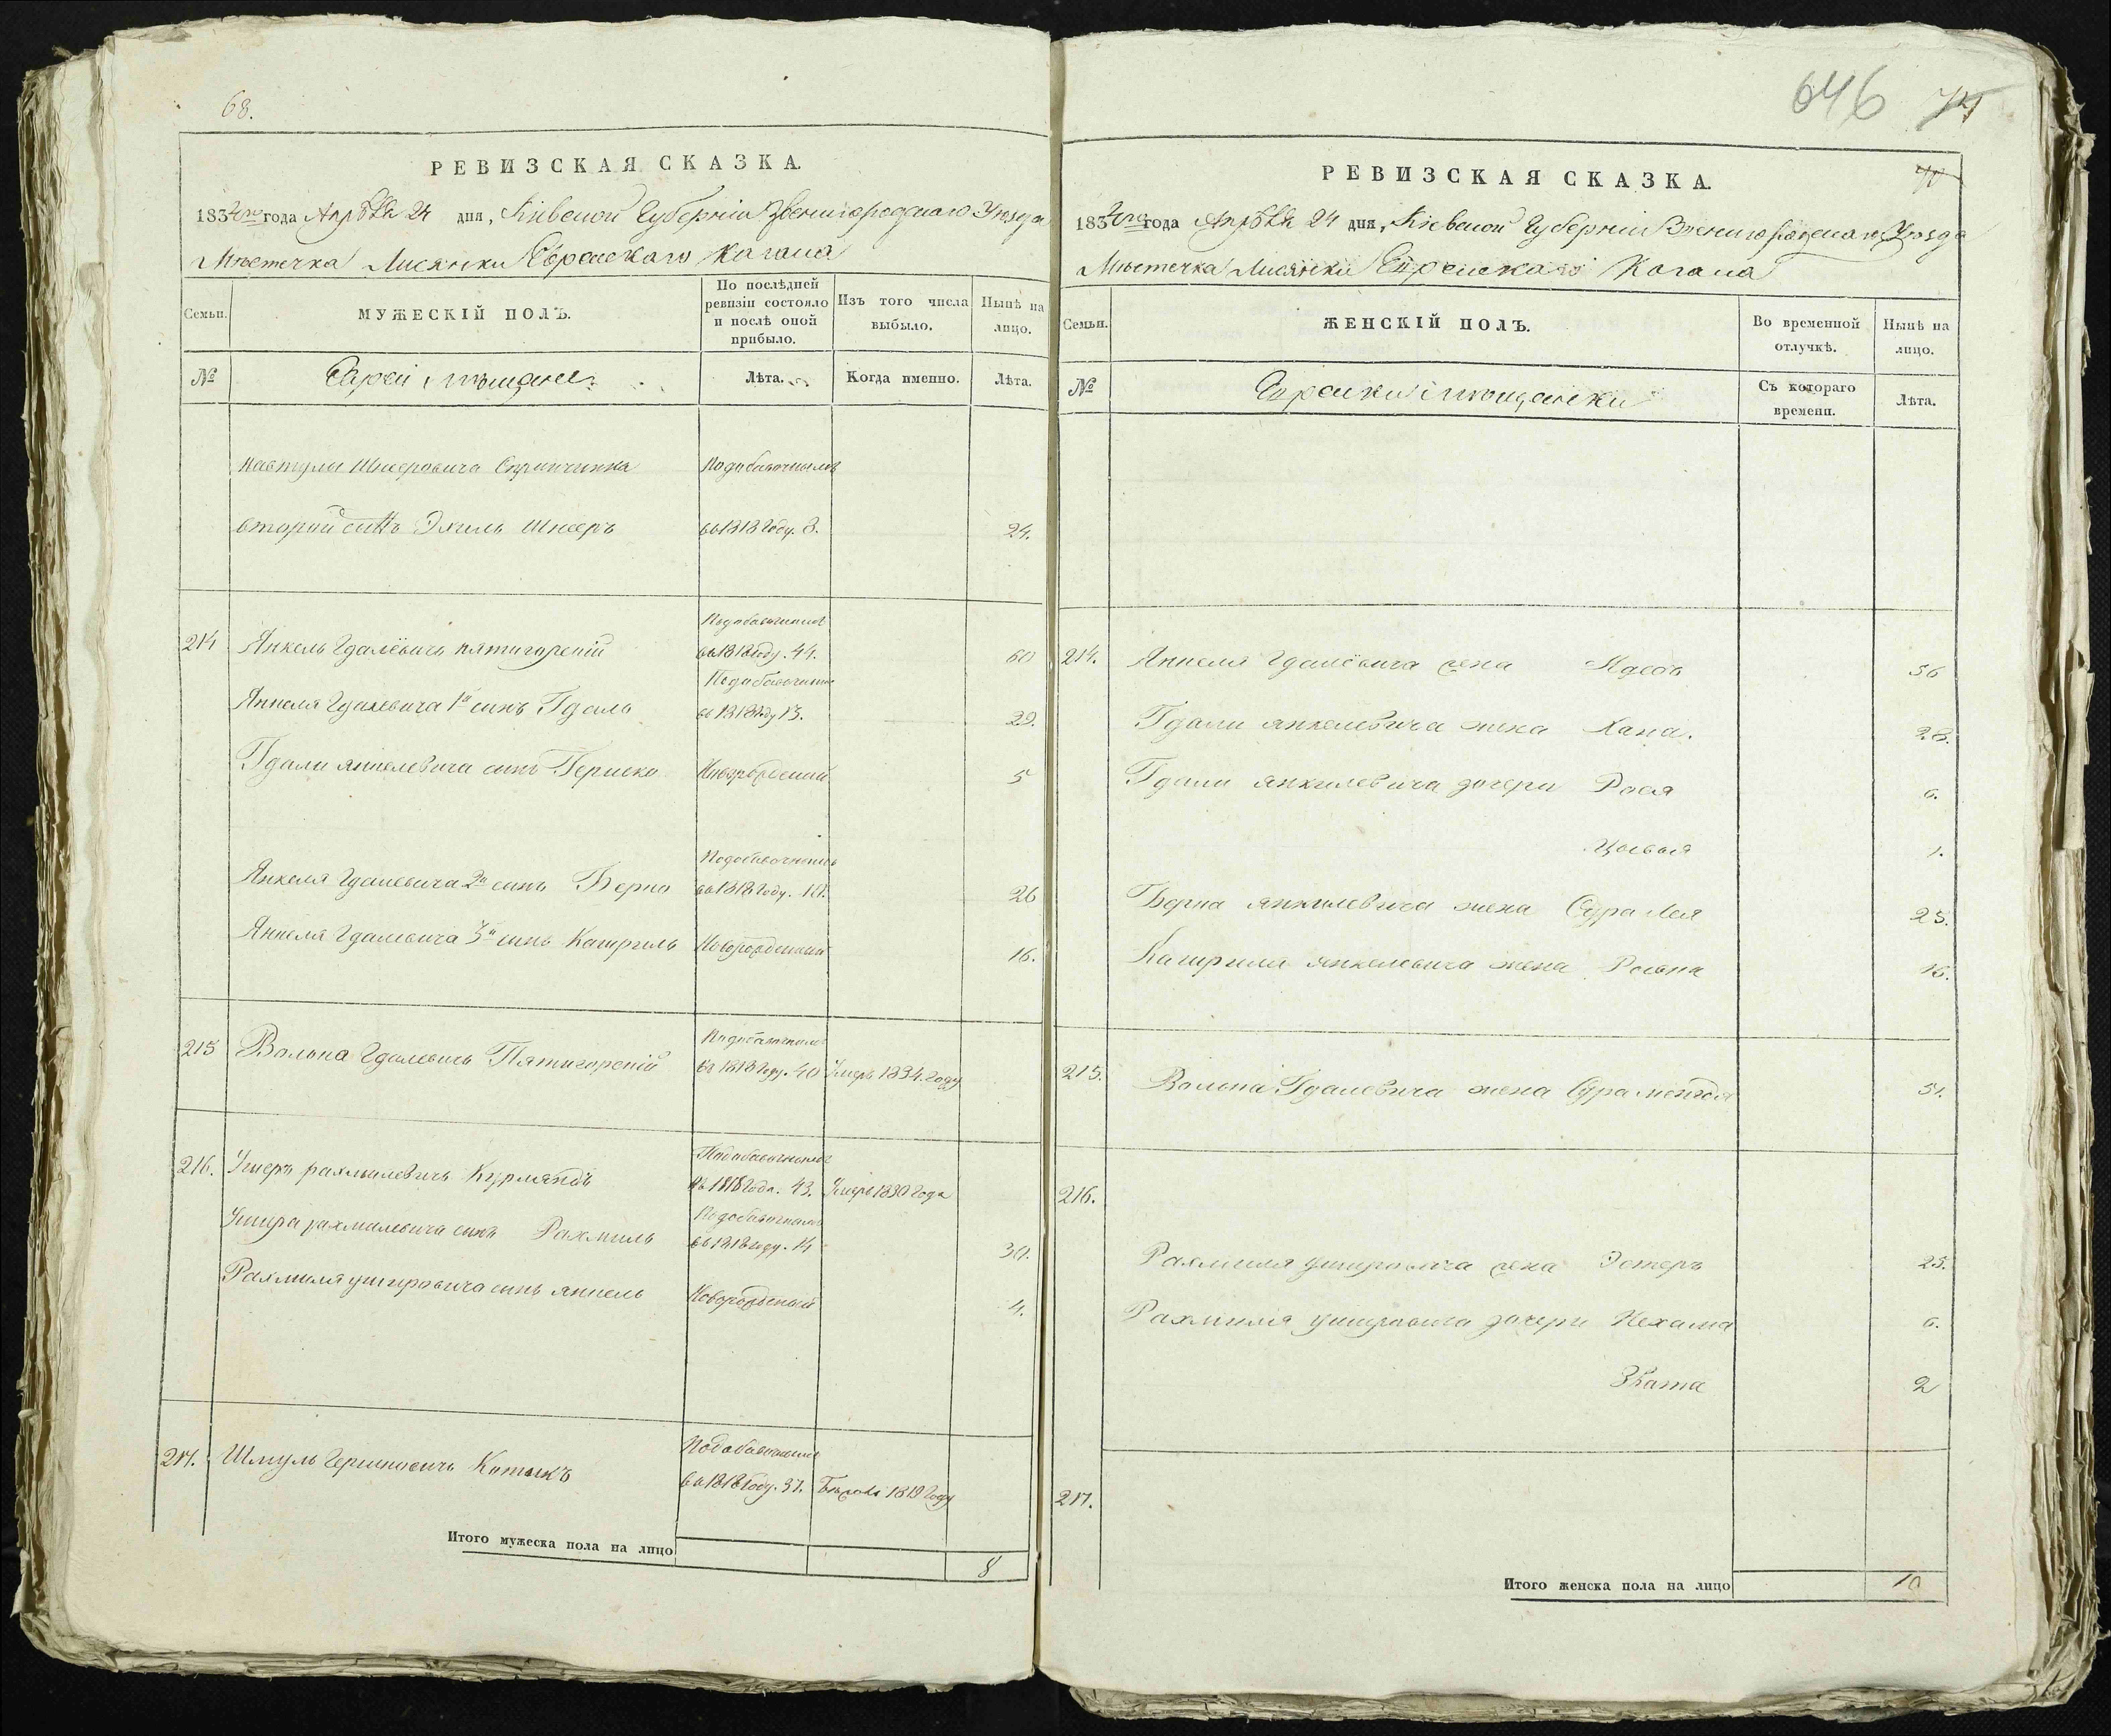 68.
РЕВИЗСКАЯ СКАЗКА.
1834го года Апрѣля 24 дня, Кіевской Губерніи Звенигородскаго Уѣзда
Мѣстечка Лисянки Еврейскаго Кагала
Семьи.
МУЖЕСКІЙ ПОЛЪ.
По послѣдней
ревизіи состояло
и послѣ оной
прибыло.
Изъ того числа
выбыло.
Нынѣ на
лицо.
№
Евреи мѣщане.
Лѣта.
Когда именно.
Лѣта.
Шнееровича
Подобавочнымъ
второй сынъ Эхиль Шнееръ
въ 1818 году. 8.
24.
Подобавочнымъ
214
Янкель Гдалёвичъ пятигорскій
въ 1818 году. 44.
60
Подобавочнымъ
Янкеля Гдалевича 1й сынъ Гдаль
въ 1818 году 13.
29.
Гдали янкелевича сынъ Гершко
Новорожденный
5
Подобавочнымъ
Янкеля Гдалевича 2й сынъ Берко
въ 1818 году. 10.
26
Янкеля Гдалевича 3й сынъ Кашриль
Новорожденный
16.
Подобавочнымъ
215
Волько Гдалевичъ Пятигорскій
въ 1818 году. 40
Умеръ 1834. году
Подобавочнымъ
216.
Ушеръ рахмилевичъ
въ 1818 года. 43.
Умеръ 1830 года
Подобавочнымъ
Ушера рахмилевича сынъ Рахмиль
въ 1818 году. 14
30.
Рахмиля ушеровича сынъ янкель
Новорожденный
4.
Подобавочнымъ
217.
Шмуль Гершковичъ Котыкъ
въ 1818 году. 37.
Бѣжалъ 1819 году
Итого мужеска пола на лицо
8
646
74
РЕВИЗСКАЯ СКАЗКА.
1834го года Апрѣля 24 дня, Кіевской Губерніи Звенигородскаго Уѣзда
Мѣстечка Лисянки Еврейскаго Кагала
Семьи.
ЖЕНСКІЙ ПОЛЪ.
Во временной
отлучкѣ.
Нынѣ на
лицо.
№
Еврейки мѣщанки
Съ котораго
времени.
Лѣта.
214.
Янкеля Гдалёвича жена
56
Гдали янкелевича жена Хана.
28.
Гдали янкилевича дочери Рася
6.
Цывья
1.
Берка янкилевича жена Сура Лея
25.
Кашриля янкелевича жена
16.
215.
Волька Гдалевича жена Сура
51.
216.
Рахмиля ушеровича жена Эстеръ
25.
Рахмиля ушеровича дочери Нехама
6.
Злата
2
217.
Итого женска пола на лицо
10